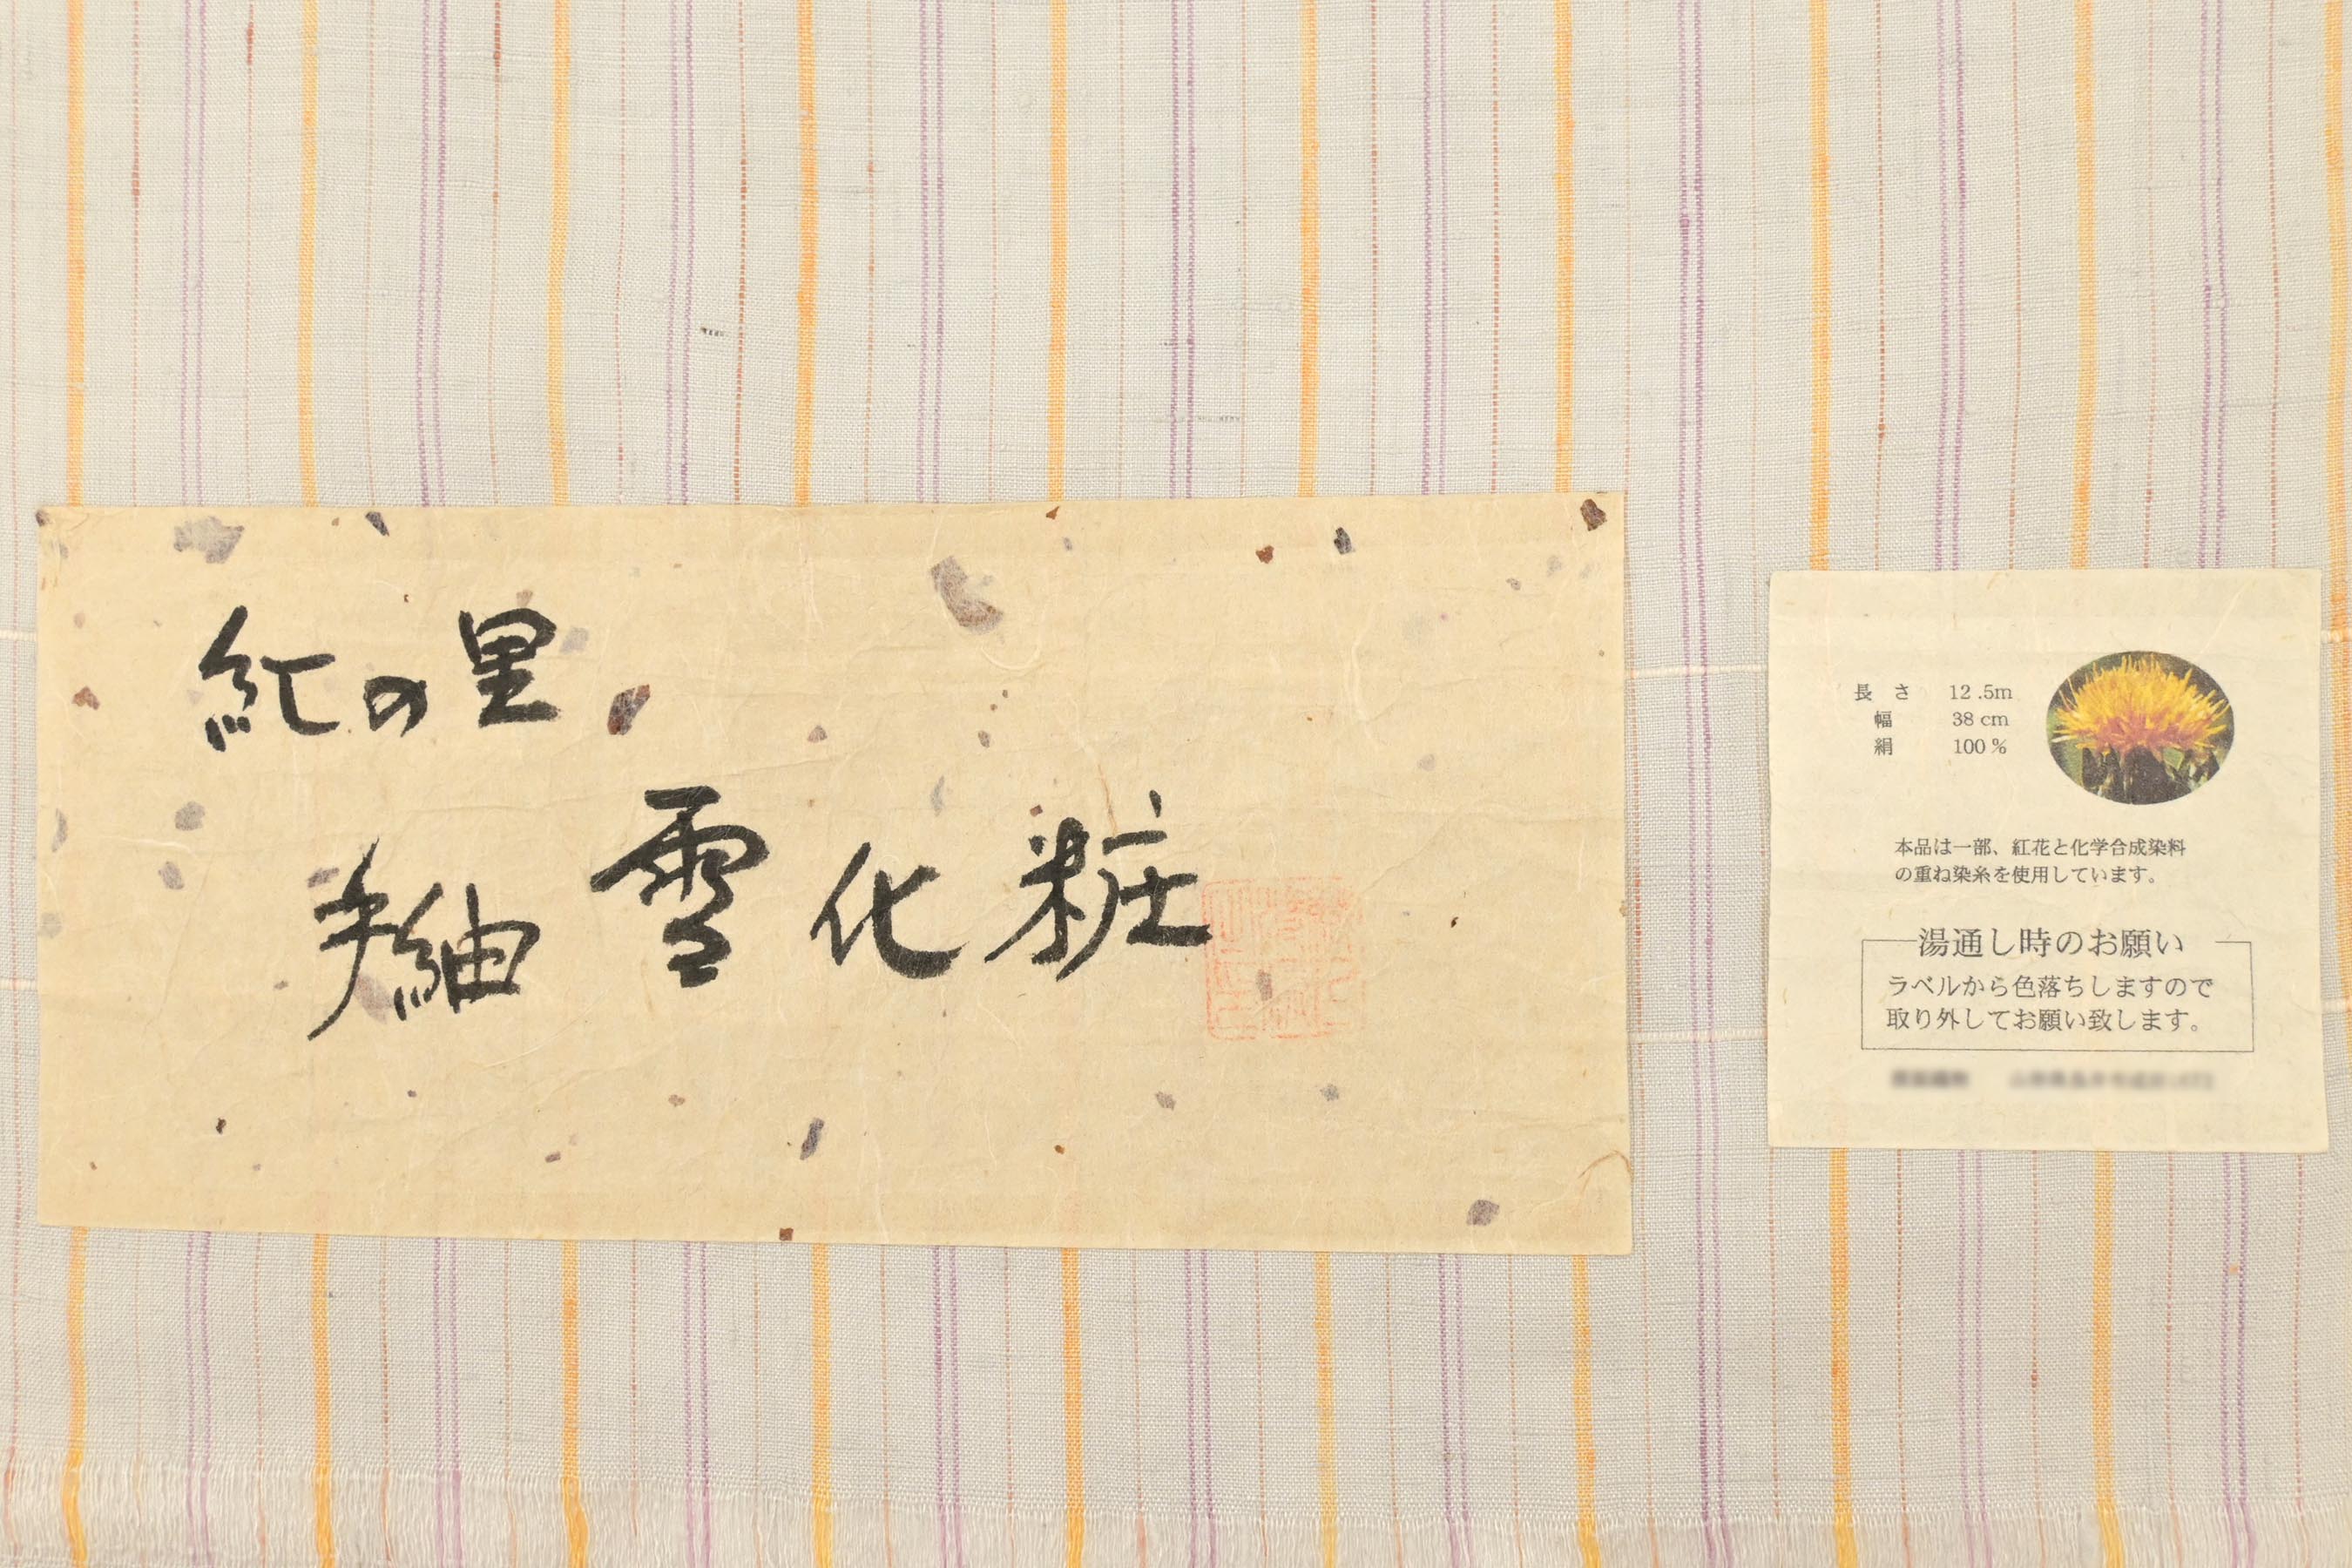 紅の里
手紬 雪化粧
長さ 12.5m
幅 38cm
絹 100%
本品は一部、紅花と化学合成染料
の重ね染糸を使用しています。
湯通し時のお願い
ラベルから色落ちしますので
取り外してお願い致します。